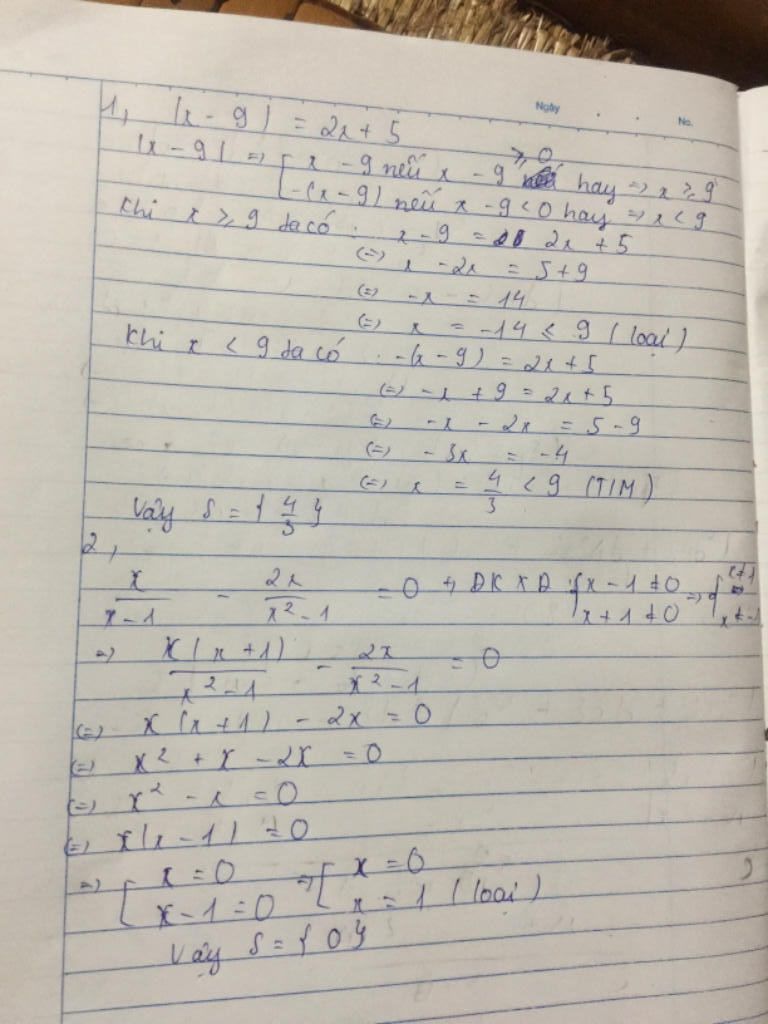 Ngày
No.
1, |x - 9| = 2x + 5
|x - 9| => [ x - 9 nếu x - 9 ≥ 0 hay => x ≥ 9
-(x - 9) nếu x - 9 < 0 hay => x < 9
Khi x ≥ 9 ta có : x - 9 = 2x + 5
(=) x - 2x = 5 + 9
(=) -x = 14
(=) x = -14 ≤ 9 (loại)
Khi x < 9 ta có : -(x - 9) = 2x + 5
(=) -x + 9 = 2x + 5
(=) -x - 2x = 5 - 9
(=) -3x = -4
(=) x = 4/3 < 9 (TM)
Vậy S = { 4/3 }
2,
x/(x - 1) - 2x/(x² - 1) = 0 + ĐKXĐ : { x - 1 ≠ 0 => { x ≠ 1
x + 1 ≠ 0 x ≠ -1
=> x(x + 1)/(x² - 1) - 2x/(x² - 1) = 0
(=) x(x + 1) - 2x = 0
(=) x² + x - 2x = 0
(=) x² - x = 0
(=) x(x - 1) = 0
=> [ x = 0 => [ x = 0
x - 1 = 0 x = 1 (loại)
Vậy S = { 0 }